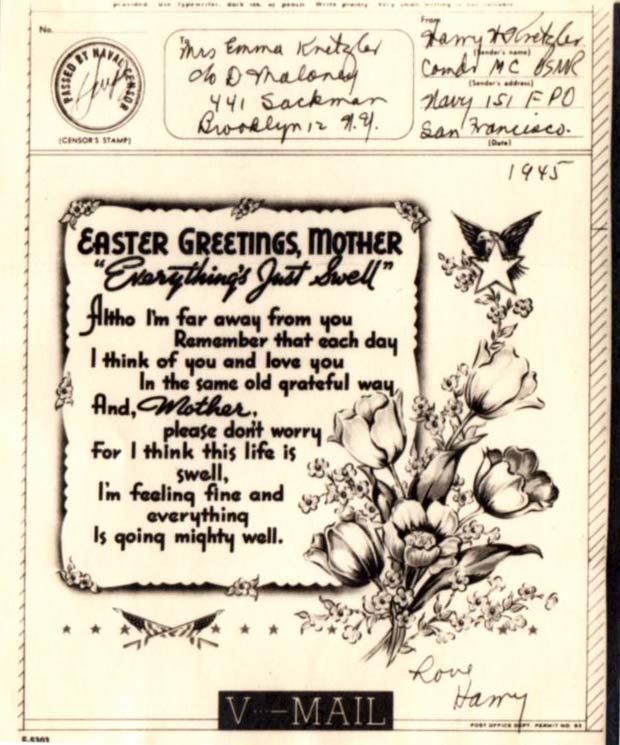 provided. Use typewriter, dark ink, or pencil. Write plainly. Very small writing is not suitable
No.
PASSED BY NAVAL CENSOR
(CENSOR'S STAMP)
To
Mrs Emma Kretzler
c/o D Maloney
441 Sackman
Brooklyn 12 N.Y.
From
Harry H Kretzler
(Sender's name)
Comdr MC USNR
(Sender's address)
Navy 151 FPO
San Francisco.
(Date)
1945
EASTER GREETINGS, MOTHER
"Everything's Just Swell"
Altho I'm far away from you
Remember that each day
I think of you and love you
In the same old grateful way
And, Mother,
please don't worry
For I think this life is
swell,
I'm feeling fine and
everything
Is going mighty well.
Love
Harry
V···—MAIL
POST OFFICE DEPT. PERMIT NO. 93